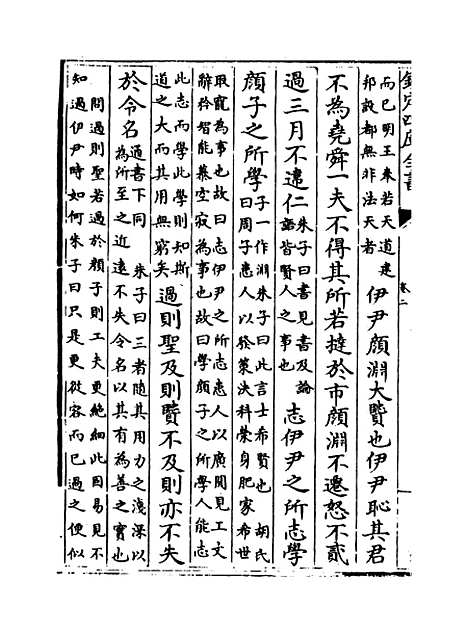 欽定四庫全書
卷二
而已明王奉若天道建
邦設都無非法天者
伊尹顏淵大賢也伊尹恥其君
不為堯舜一夫不得其所若撻於市顏淵不遷怒不貳
過三月不違仁
朱子曰書見書及論
語皆賢人之事也
志伊尹之所志學
顏子之所學
子一作淵朱子曰此言士希賢也　胡氏
曰周子患人以發策決科榮身肥家希世
取寵為事也故曰志伊尹之所志患人以廣聞見工文
辭矜智能慕空寂為事也故曰學顏子之所學人能志
此志而學此學則知斯
道之大而其用無窮矣
過則聖及則賢不及則亦不失
於令名
通書下同　朱子曰三者隨其用力之淺深以
為所至之近遠不失令名以其有為善之實也
問過則聖若過於顏子則工夫更絶細此固易見不
知過伊尹時如何朱子曰只是更從容而已過之便似